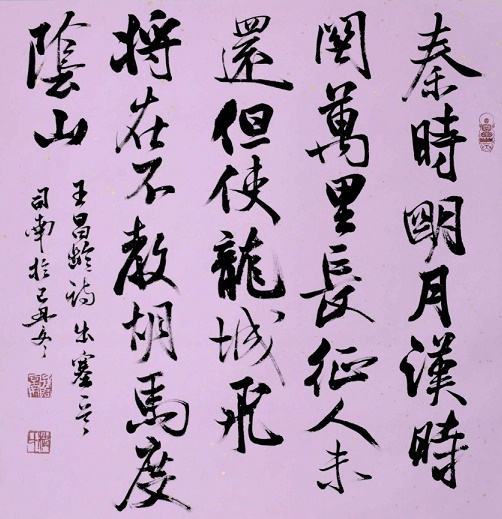 秦時明月漢時
關萬里長征人未
還但使龍城飛
将在不教胡馬度
陰山
王昌齡詩出塞
司南於己丑冬